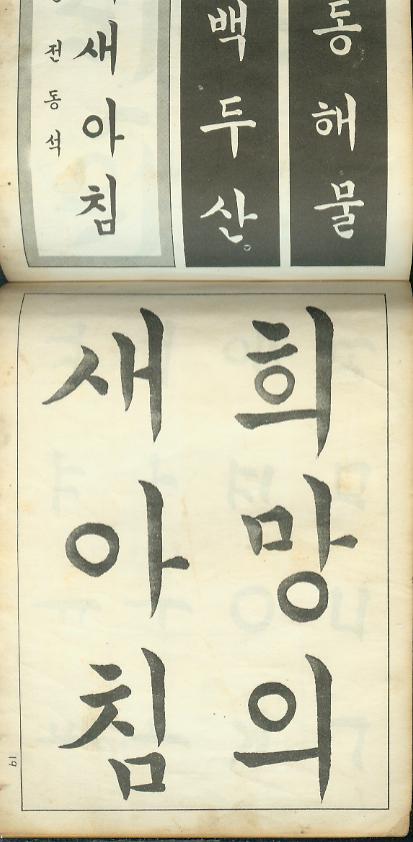 동해물
백두산
새아침
전동석
희망의
새아침
19